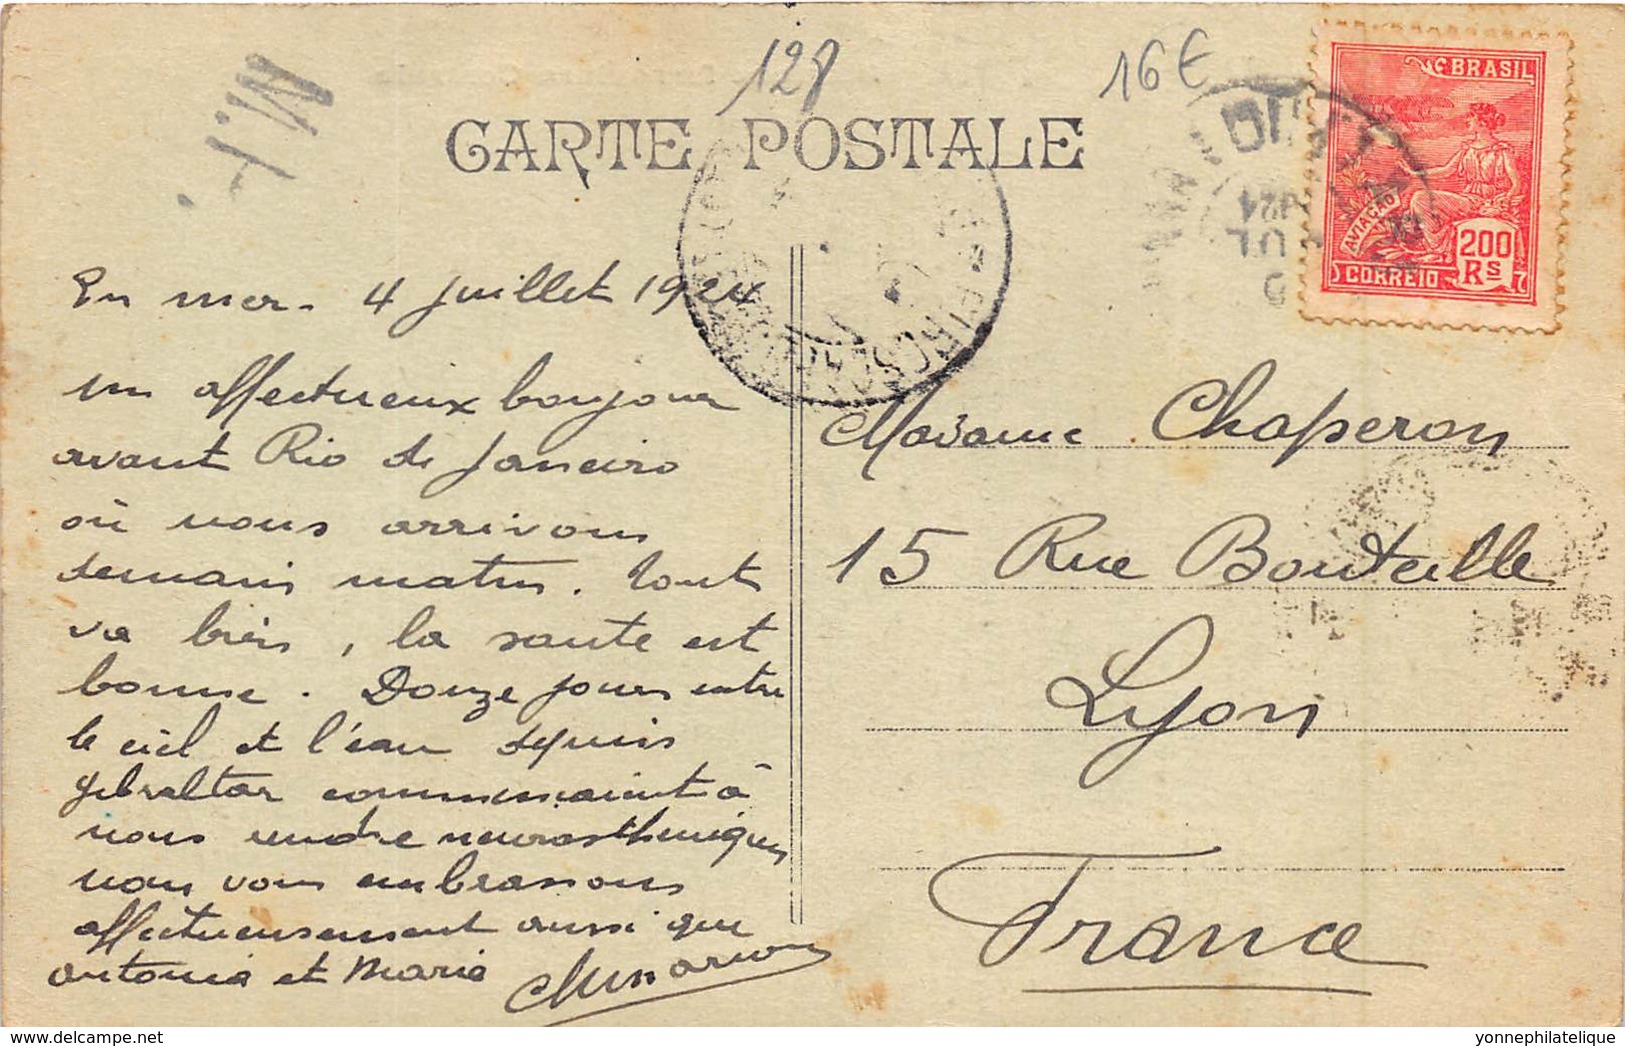 M.F.
128
16€
CARTE POSTALE
BRASIL
AVIAÇÃO
200 Rs
CORREIO
En mer. 4 juillet 1924
un affectueux bonjour
avant Rio de Janeiro
où nous arrivons
demain matin. Tout
va bien, la santé est
bonne. Douze jours entre
le ciel et l'eau depuis
Gibraltar commencaient à
nous rendre neurasthéniques
nous vous embrassons
affectueusement ainsi que
Antonia et Marie
Madame Chaperon
15 Rue Bouteille
Lyon
France
www.delcampe.net
yonnephilatelique